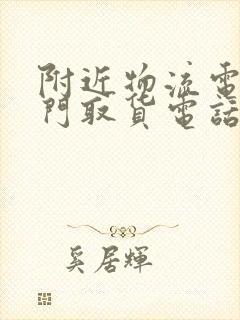 附近物流電
門取貨電話
奚居輝